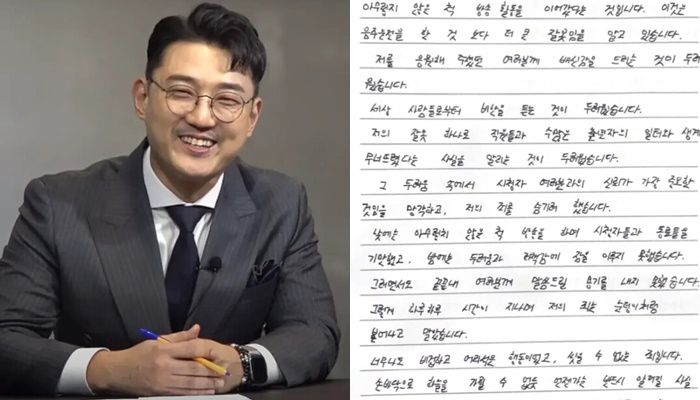 아무렇지 않은 척 방송 활동을 이어갔다는 것입니다. 이것은
음주운전을 한 것 보다 더 큰 잘못임을 알고 있습니다.
저를 응원해 주셨던 여러분께 배신감을 드리는 것이 두려
웠습니다.
세상 사람들로부터 비난을 듣는 것이 두려웠습니다.
저의 잘못 하나로 직원들과 수많은 출연자의 일터와 생계
무너트렸다는 사실을 알리는 것이 두려웠습니다.
그 두려움 속에서 시청자 여러분과의 신뢰가 가장 중요한
것임을 망각하고, 저의 죄를 숨기려 했습니다.
낮에는 아무렇지 않은 척 방송을 하며 시청자들과 동료들을
기만했고, 밤에는 두려움과 죄책감에 잠을 이루지 못했습니다.
그러면서도 끝끝내 여러분께 말씀드릴 용기를 내지 못했습니다.
그렇게 하루하루 시간이 지나며 저의 죄는 눈덩이처럼
불어나고 말았습니다.
너무나도 비겁하고 어리석은 행동이었고, 씻을 수 없는 죄입니다.
손바닥으로 하늘을 가릴 수 없듯 언젠가는 반드시 알려질 사실